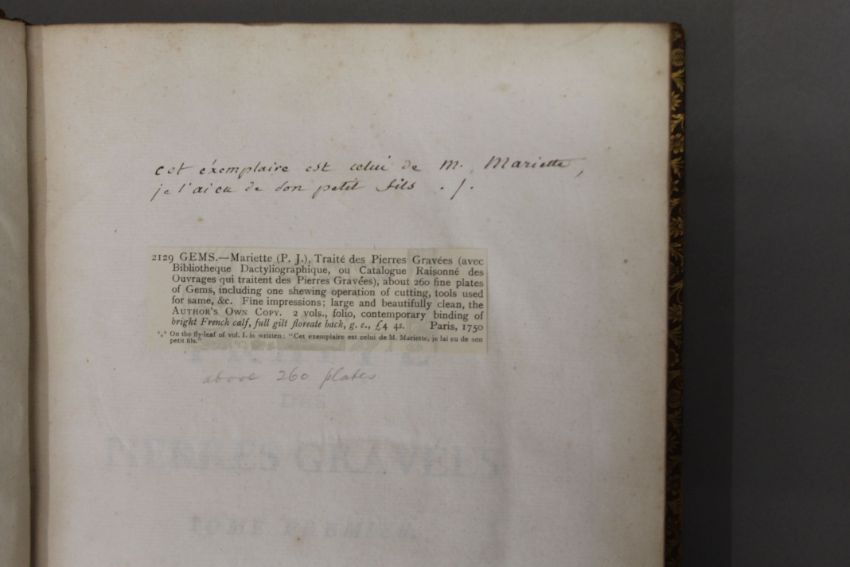 cet éxemplaire est celui de M. Mariette,
je l'ai eu de son petit fils ./.
2129 GEMS.—Mariette (P. J.), Traité des Pierres Gravées (avec
Bibliotheque Dactyliographique, ou Catalogue Raisonné des
Ouvrages qui traitent des Pierres Gravées), about 260 fine plates
of Gems, including one shewing operation of cutting, tools used
for same, &c. Fine impressions; large and beautifully clean, the
AUTHOR'S OWN COPY. 2 vols., folio, contemporary binding of
bright French calf, full gilt floreate back, g. e., £4 4s. Paris, 1750
*** On the fly-leaf of vol. I. is written: "Cet exemplaire est celui de M. Mariette, je lai eu de son
petit fils."
above 260 plates
DES
PIERRES GRAVÉES
TOME PREMIER.